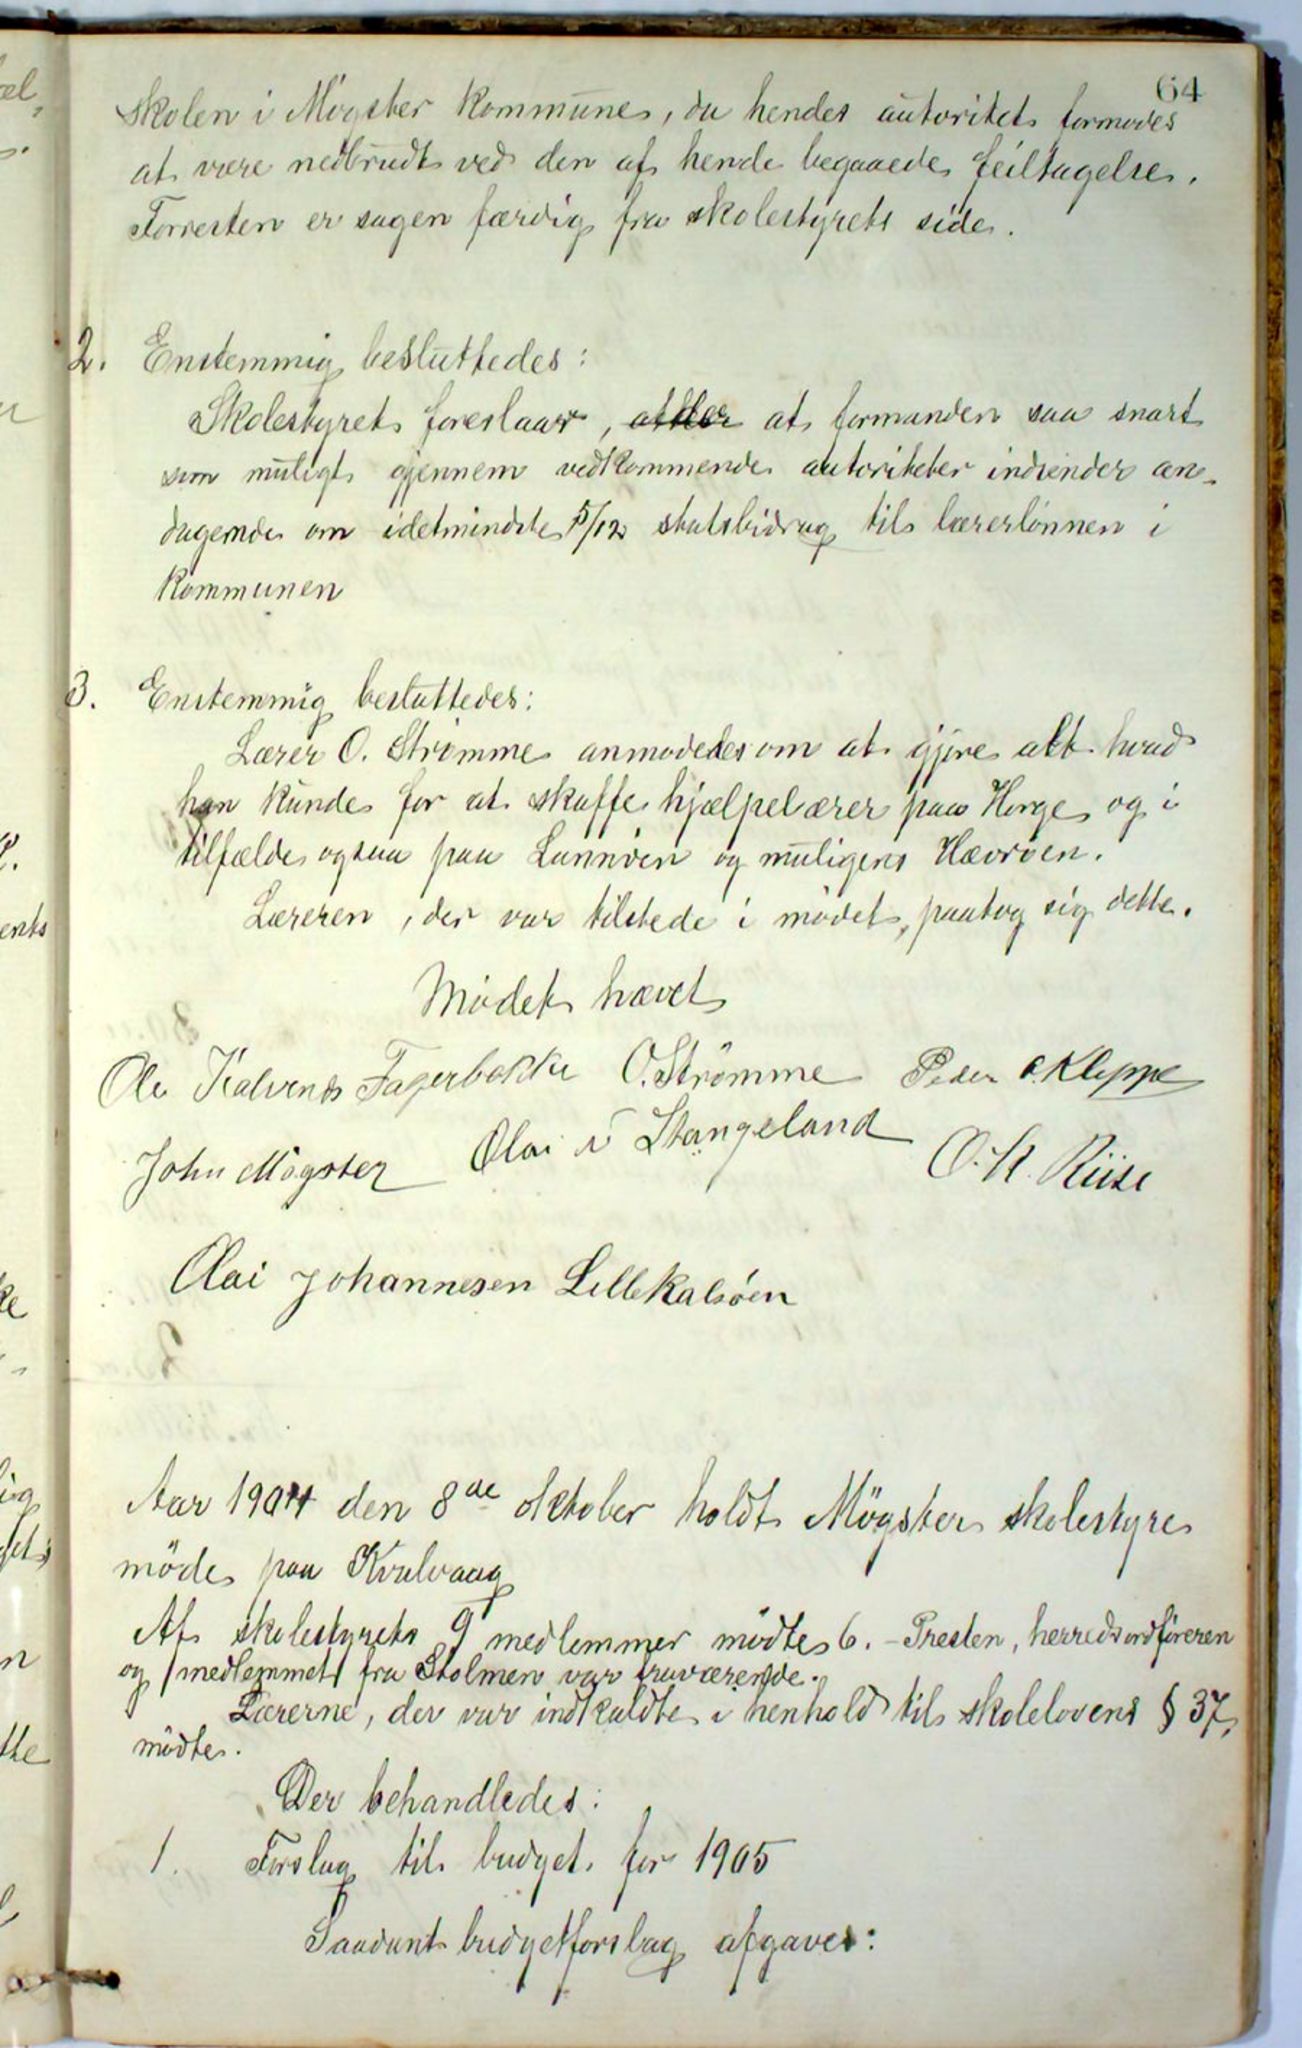 64
skolen i Møgster kommune, da hendes autoritet formodes
at være nedbrudt ved den af hende begaaede feiltagelse.
Forresten er sagen færdig fra skolestyrets side.
2. Enstemmig besluttedes:
Skolestyret foreslaar, at der at formanden saa snart
som muligt gjennem vedkommende autoriteter indsender an-
dragende om idetmindste 5/12 statsbidrag til lærerlönnen i
kommunen
3. Enstemmig besluttedes:
Lærer O. Strømme anmodedes om at gjøre alt hvad
han kunde for at skaffe hjælpelærer paa Horge og i
tilfælde ogsaa paa Lunnöen og muligens Hævröen.
Læreren, der var tilstede i mödet, paatog sig dette.
Mödet hævet
Ole Kalvenes Fagerbakke O. Strömme Peder O. Kleppe
John Mögster Olai N Stangeland O. K. Riise
Olai Johannesen Lillekalsöen
Aar 1904 den 8de oktober holdt Mögster skolestyre
möde paa Kvalvaag
Af skolestyrets 9 medlemmer mödte 6. - Presten, herredsordföreren
og medlemmet fra Stolmen var fraværende.
Lærerne, der var indkaldte i henhold til skolelovens § 37,
mödte.
Der behandledes:
1. Forslag til budget for 1905
Saadant budgetforslag afgaves: